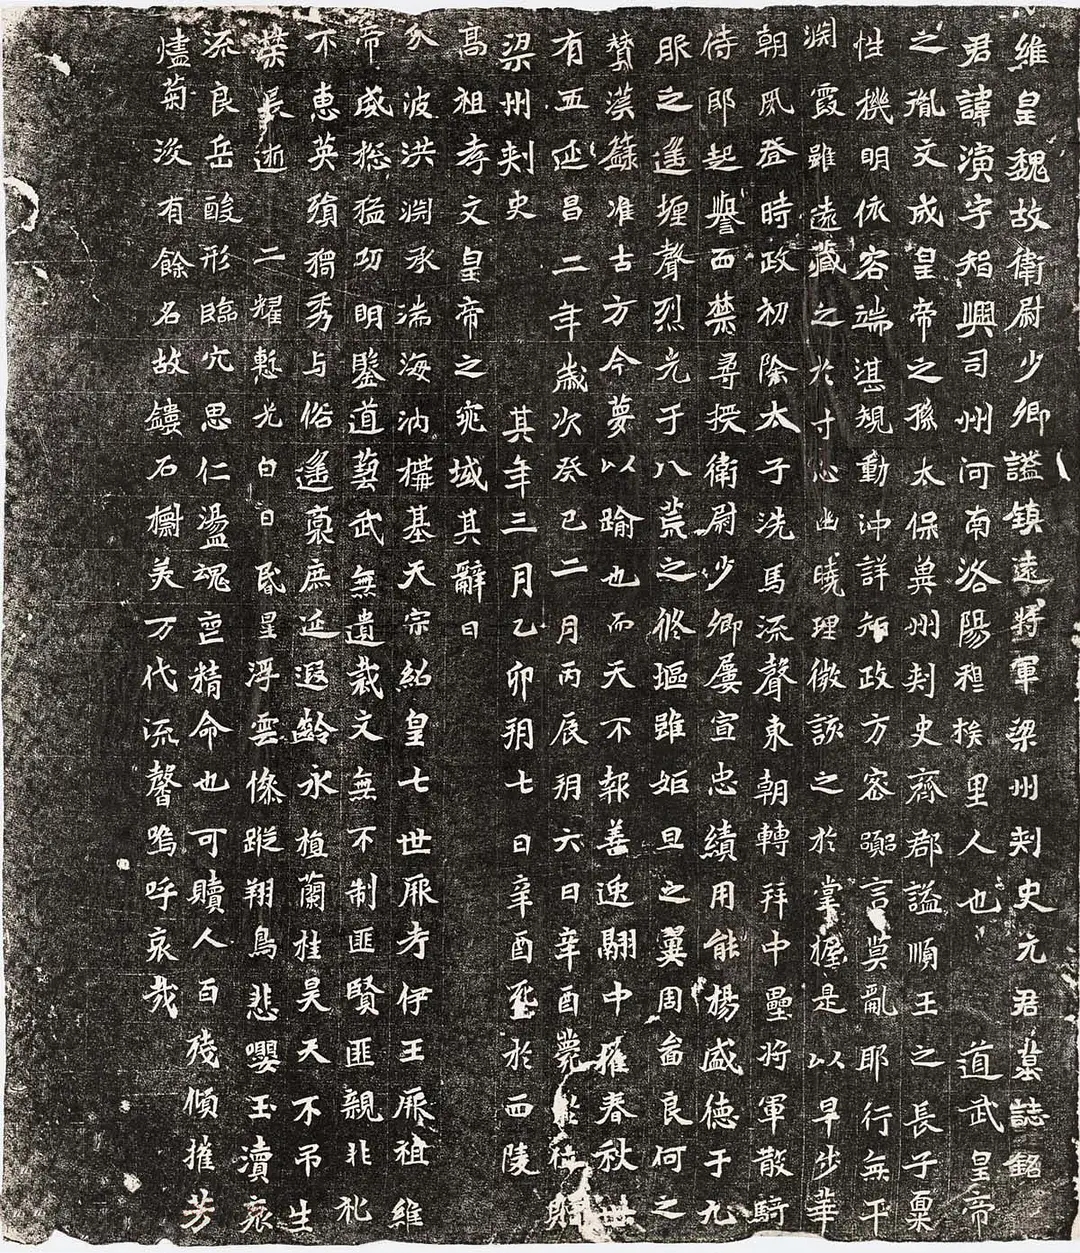 維皇魏故衛尉少卿謚鎮遠將軍梁州刾史元君墓誌銘
君諱演字智興司州河南洛陽穆族里人也 道武皇帝
之胤文成皇帝之孫太保兾州刾史齊郡謚順王之長子稟
性機明依容端湛規動沖詳知政方密顯言莫亂耶行無平
渕霞雖遠藏之於寸心幽曉理微該之於掌握是以早步華
朝夙登時政初除太子洗馬流聲東朝轉拜中壘將軍散騎
侍郎起譽西禁尋授衛尉少卿屢宣忠績用能楊盛德于九
服之遙堙聲烈光于八荒之脩堰雖姬旦之翼周畣良何之
贊漢籙准古方今蔑以踰也而天不報善逸翮中摧春秋卅
有五延昌二年歲次癸巳二月丙辰朔六日辛酉薨於 贈
梁州刾史 其年三月乙卯朔七日辛酉 於西陵
高祖孝文皇帝之兆域其辭曰
 波洪渊承湍海汭構基天宗紹皇七世厥考伊王厥祖維
帝咸揔猛功明鑒道藝武無遺裁文無不制匪賢匪親非礼
不惠英㱵獨秀与俗遙禀庶延遐齡永植蘭桂昊天不吊生
榮長逝 二耀慙光白日昏星浮雲慘蹤翔鳥悲嚶玉瀆哀
流良岳酸形臨穴思仁盪魂 精命也可贖人百殘傾摧芳
燼菊没有餘名故鏤石櫥美万代流馨嗚呼哀哉